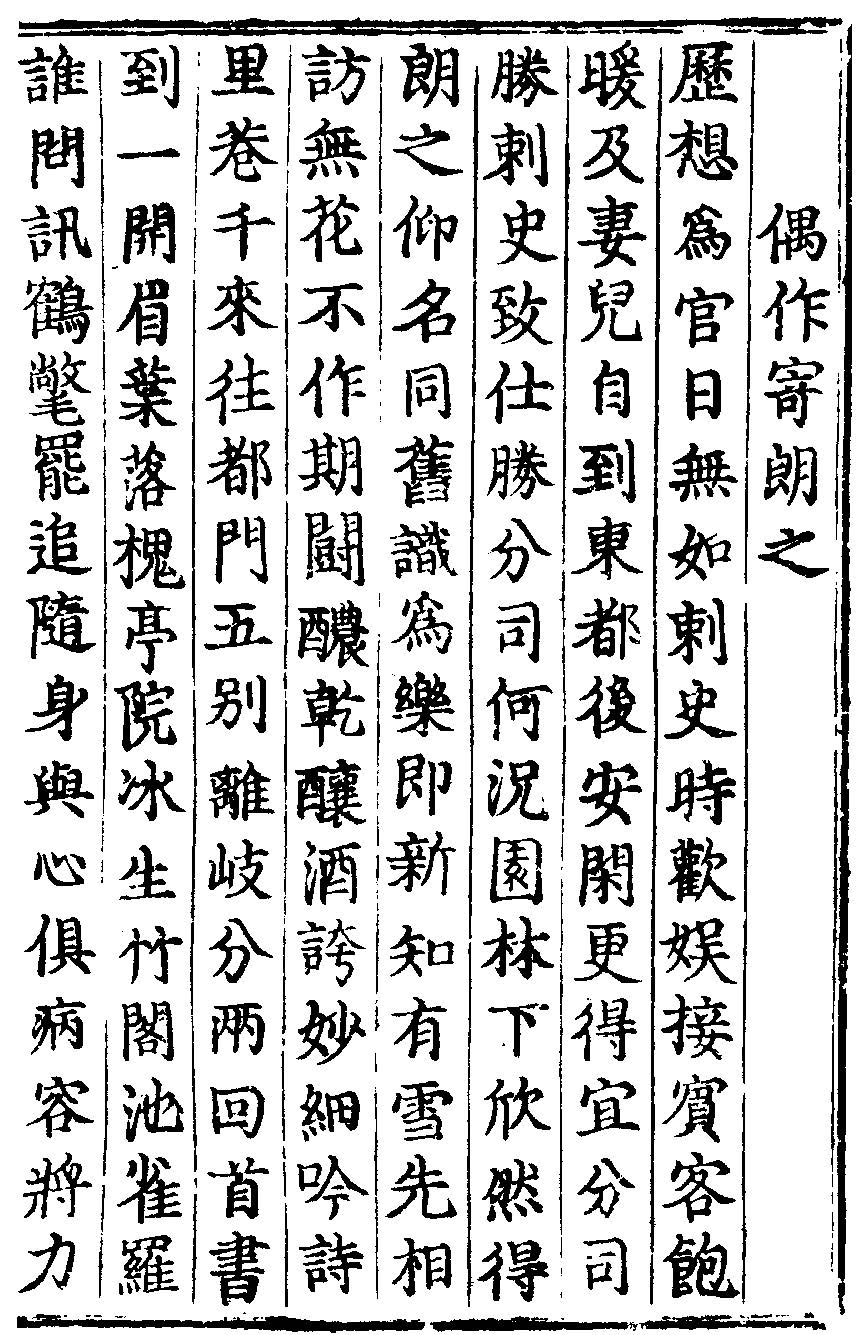 偶作寄朗之
歷想爲官日無如刺史時歡娛接賓客飽
暖及妻兒自到東都後安閑更得宜分司
勝刺史致仕勝分司何況園林下欣然得
朗之仰名同舊識爲樂即新知有雪先相
訪無花不作期鬪醲乾釀酒誇妙細吟詩
里巷千來往都門五别離岐分兩回首書
到一開眉葉落槐亭院冰生竹閣池雀羅
誰問訊鶴氅罷追隨身與心俱病容將力